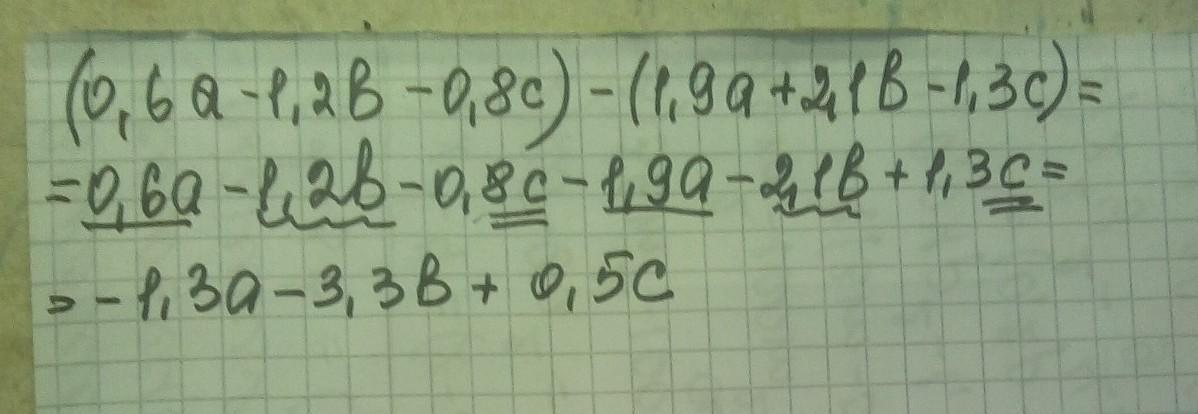 (0,6a-1,2b-0,8c)-(1,9a+2,1b-1,3c)=
=0,6a-1,2b-0,8c-1,9a-2,1b+1,3c=
=-1,3a-3,3b+0,5c